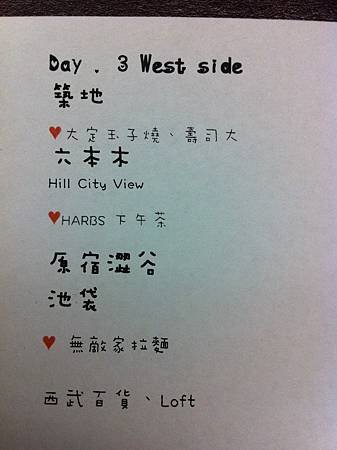 Day . 3 West side
築地
♥大定玉子燒、壽司大
六本木
Hill City View
♥HARBS 下午茶
原宿澀谷
池袋
♥ 無敵家拉麵
西武百貨、Loft